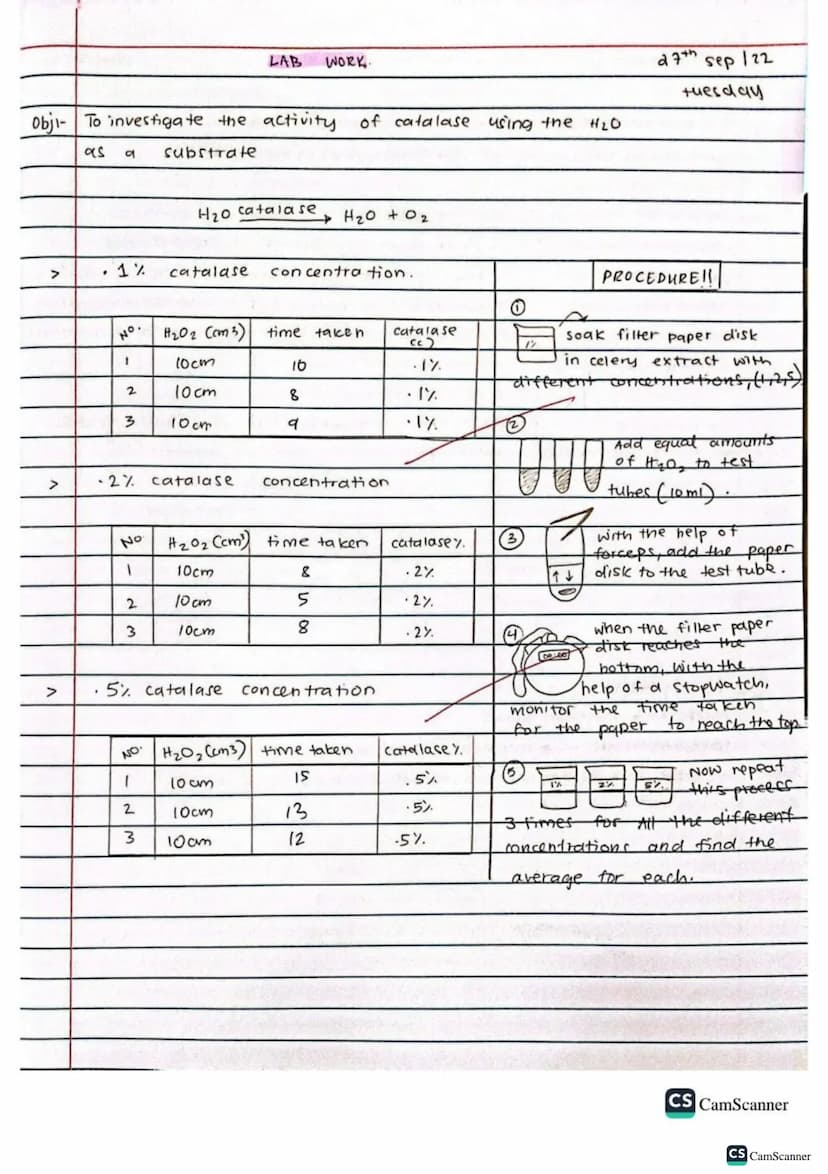 LAB WORK.
27th Sep/22
tuesday
Obj:- To investigate the activity of catalase using the H2O
as a substrate
H2O catalase → H2O + O2
> · 1% catalase concentration.
No. H2O2 (cm3) time taken catalase (c)
1 10cm 10 .1%
2 10cm 8 .1%
3 10cm 9 .1%
> ·2% catalase concentration
No. H2O2 (cm3) time taken catalase%.
1 10cm 8 .2%
2 10cm 5 .2%
3 10cm 8 .2%
> · 5% catalase concentration
NO. H2O2 (cm3) time taken catalase%.
1 10cm 15 .5%
2 10cm 13 .5%
3 10cm 12 .5%
PROCEDURE!!
① 1%
soak filter paper disk
in celery extract with
different concentrations, (1,2,5)
②
Add equal amounts
of H2O2 to test
tubes (10ml).
③ with the help of
forceps, add the paper
disk to the test tube.
④ when the filter paper
disk reaches the
bottom, with the
help of a stopwatch,
monitor the time taken
for the paper to reach the top
⑤ 1% 2% 5% Now repeat
this process
3 times for All the different
concentrations and find the
average for each.
CS CamScanner
CS CamScanner